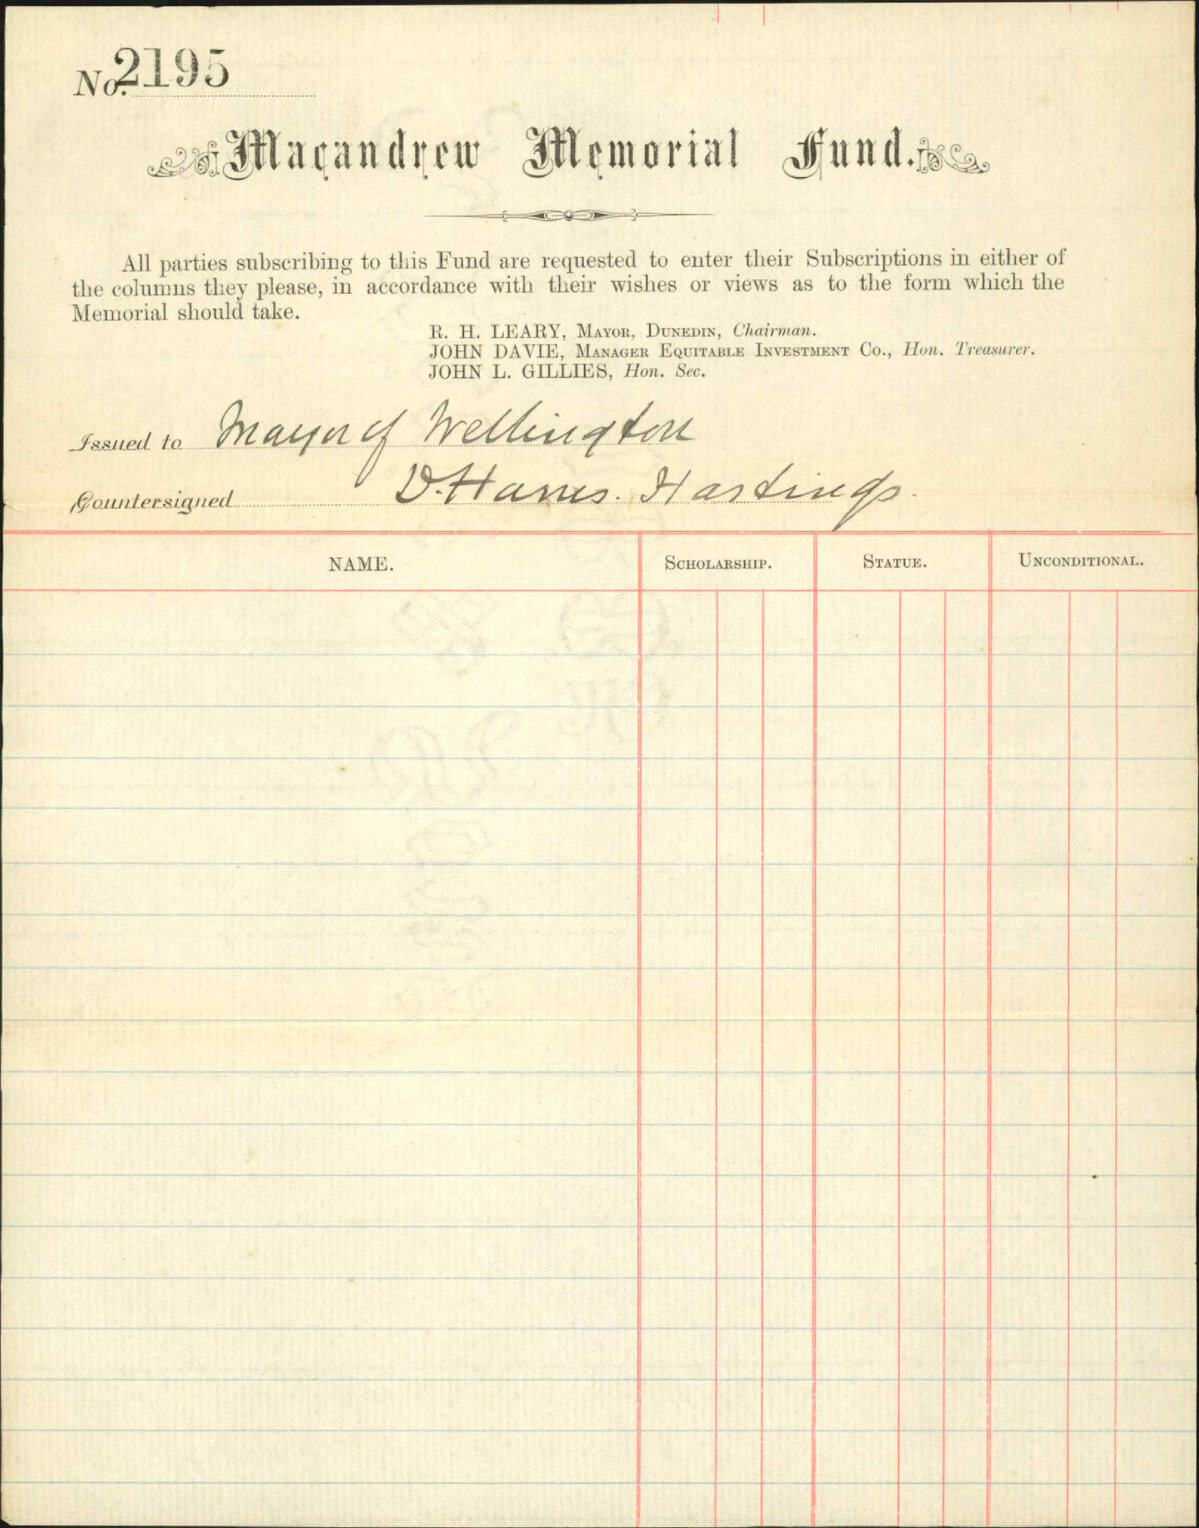 No. 2195
Macandrew Memorial Fund.
All parties subscribing to this Fund are requested to enter their Subscriptions in either of
the columns they please, in accordance with their wishes or views as to the form which the
Memorial should take.
R. H. LEARY, MAYOR, DUNEDIN, Chairman.
JOHN DAVIE, MANAGER EQUITABLE INVESTMENT CO., Hon. Treasurer.
JOHN L. GILLIES, Hon. Sec.
Issued to Mayor of Wellington
Countersigned D. Harris Hastings.
NAME. SCHOLARSHIP. STATUE. UNCONDITIONAL.